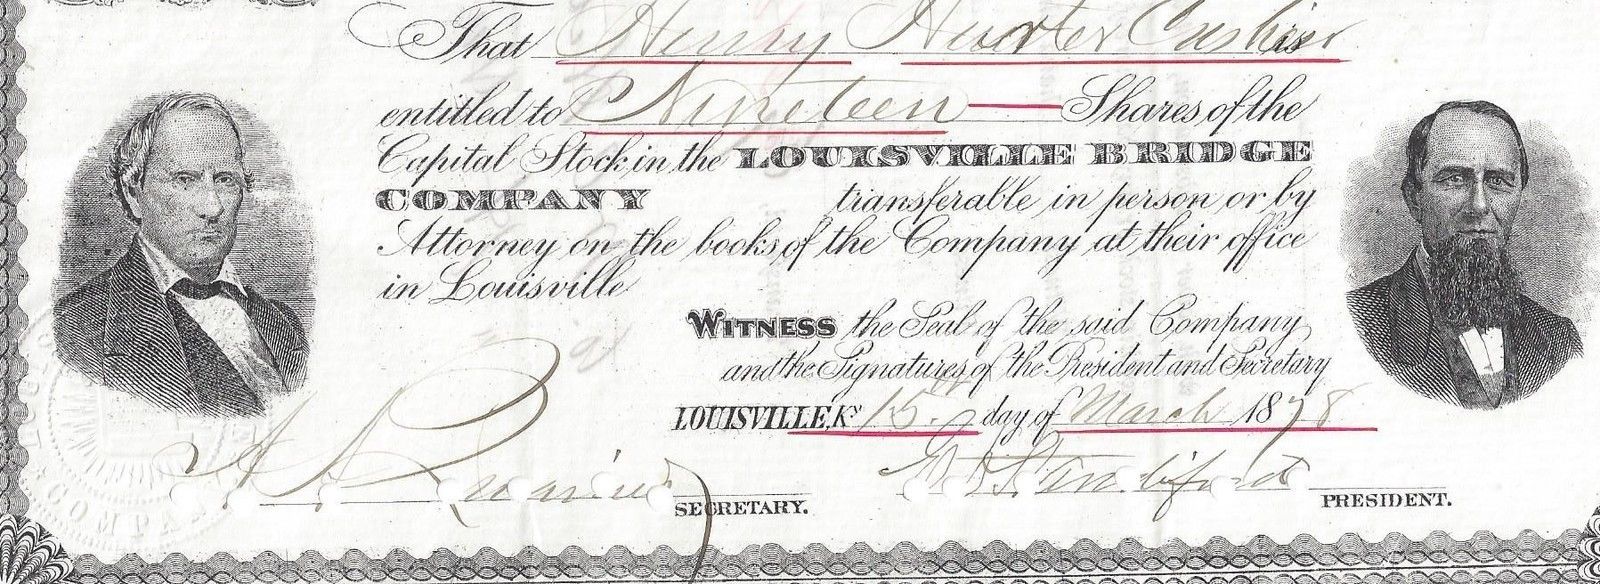 That Henry Hurter Cashier is
entitled to Nineteen Shares of the
Capital Stock in the LOUISVILLE BRIDGE
COMPANY transferable in person or by
Attorney on the books of the Company at their office
in Louisville
WITNESS the Seal of the said Company
and the Signatures of the President and Secretary
LOUISVILLE, Ky 15 day of March 1878
SECRETARY. PRESIDENT.
COMPANY